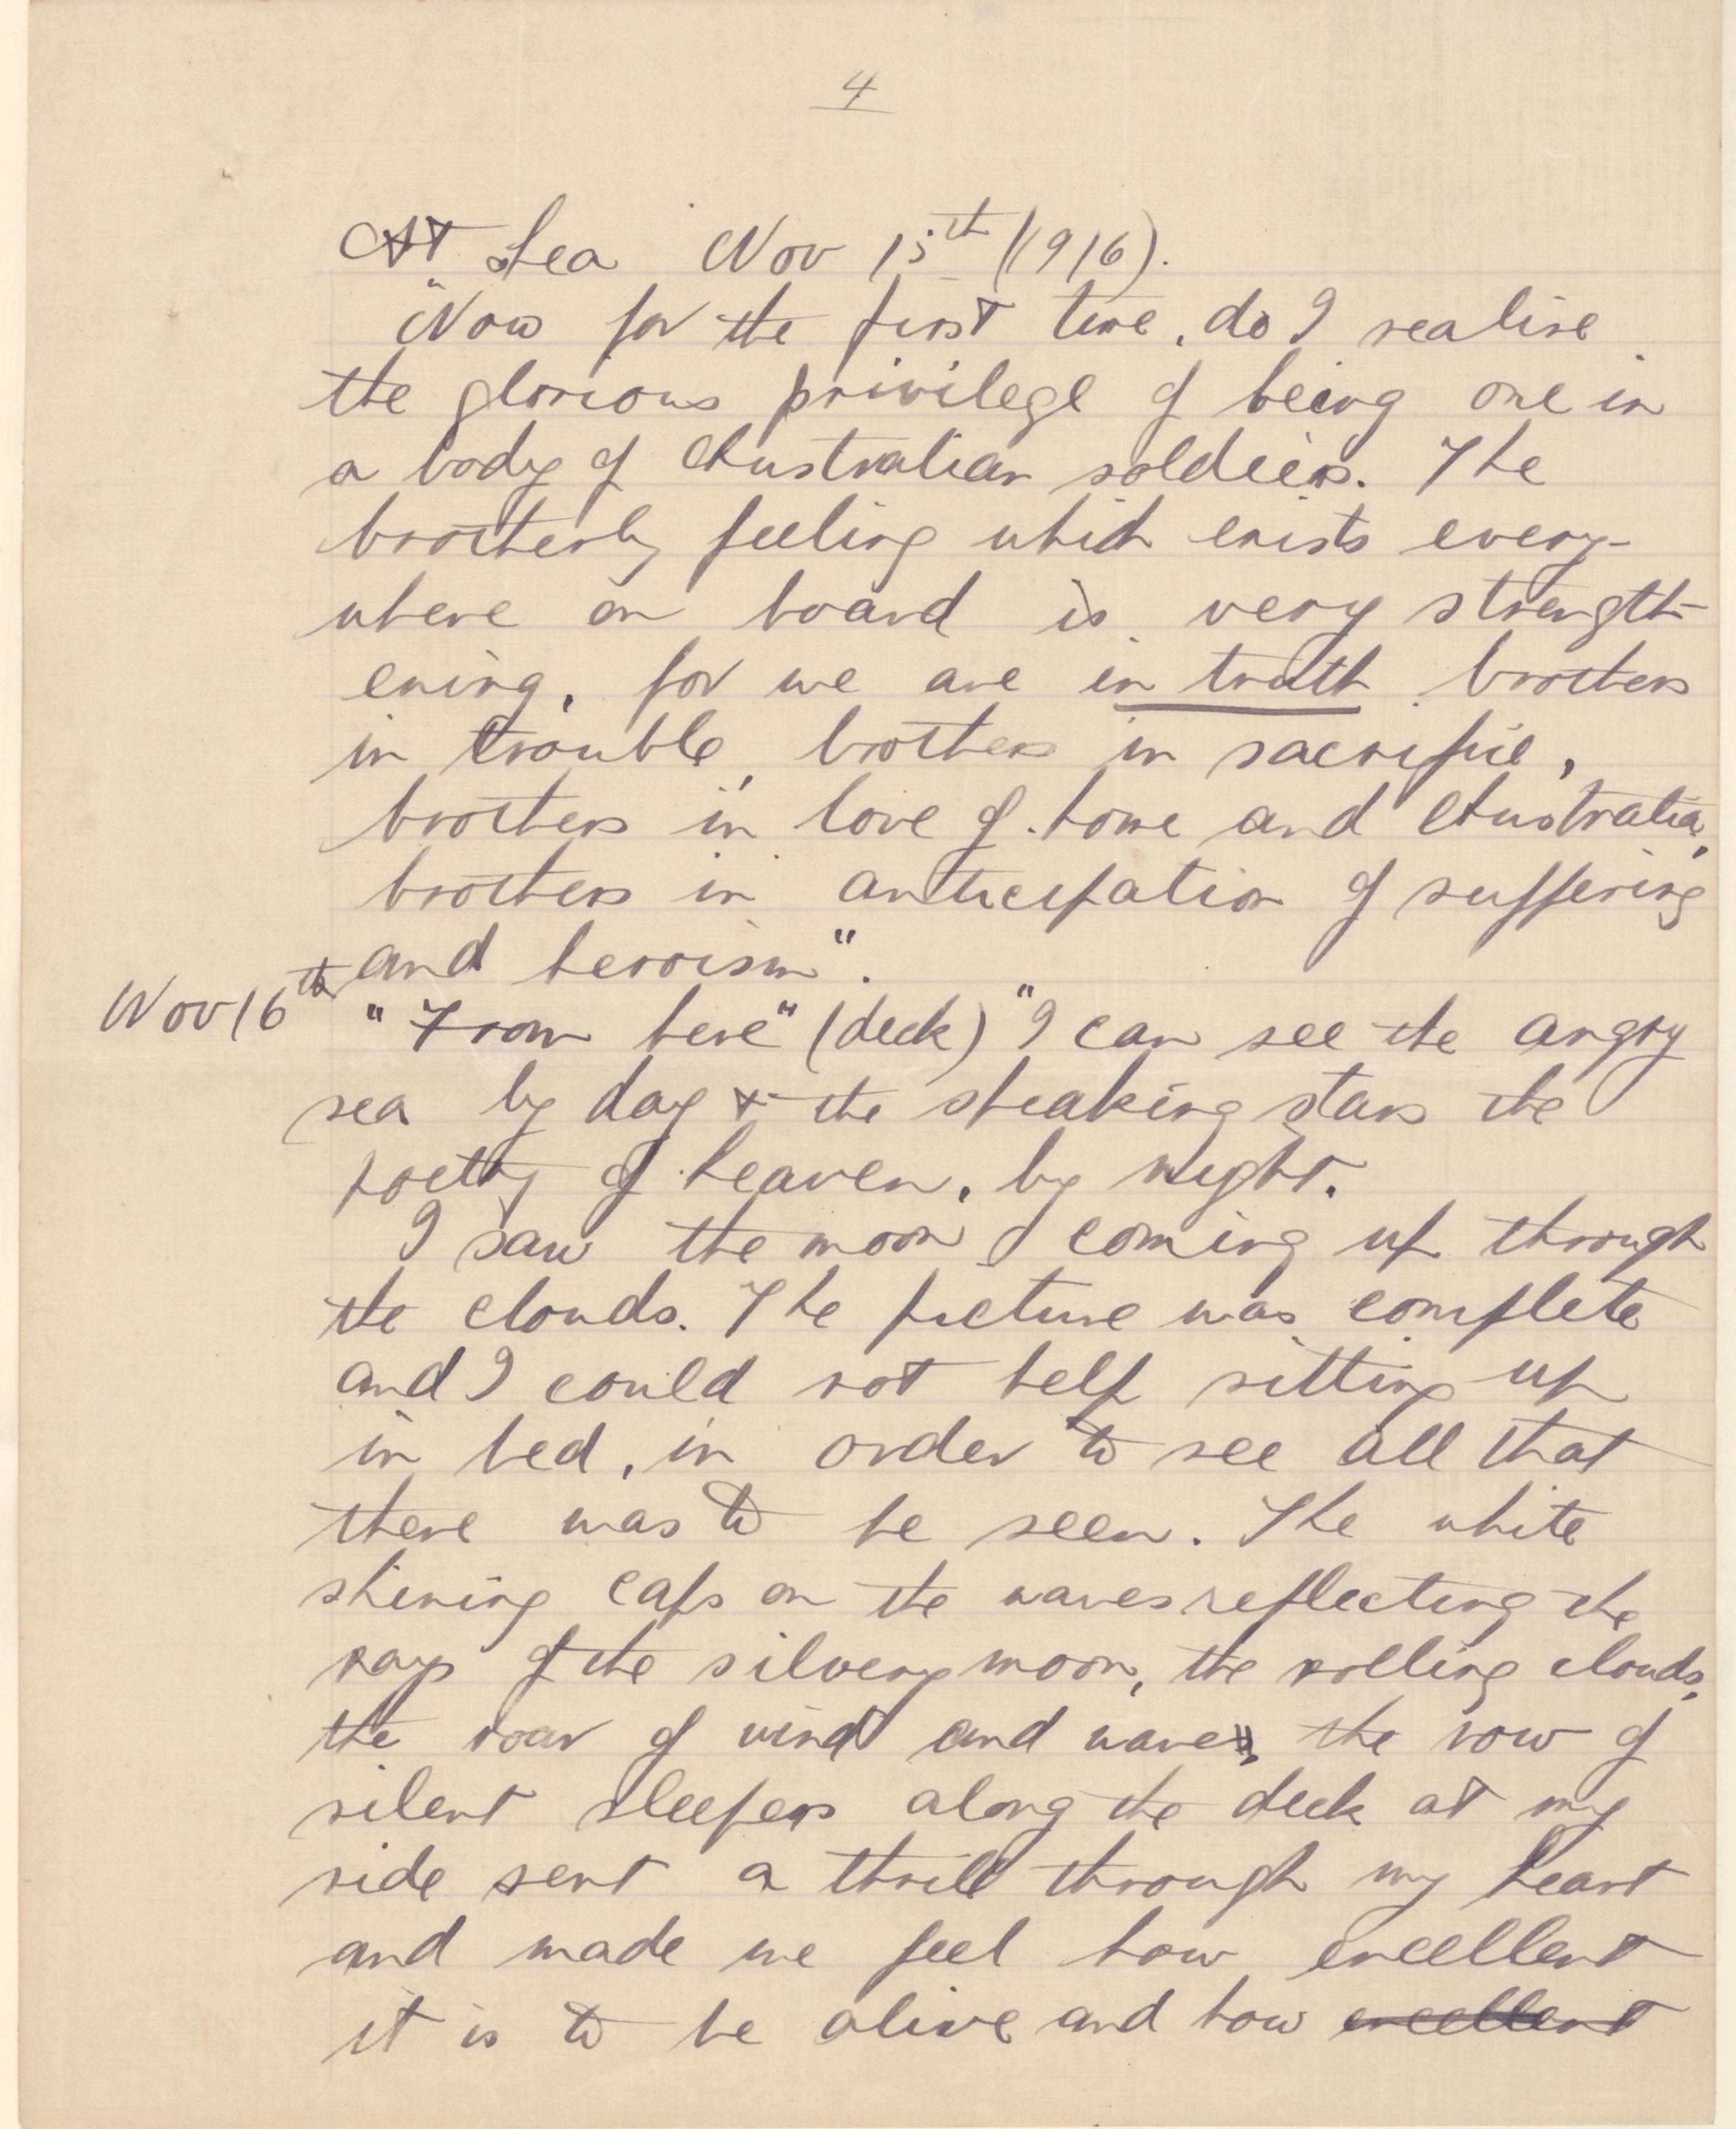 4
At Sea Nov 15th (1916).
"Now for the first time, do I realise
the glorious privilege of being one in
a body of Australian soldiers. The
brotherly feeling which exists every-
where on board is very strength-
ening, for we are in truth brothers
in trouble, brothers in sacrifice,
brothers in love of home and Australia,
brothers in anticipation of suffering
and heroism".
Nov 16th "From here" (deck) "I can see the angry
sea by day & the steaking stars the
poetry of heaven, by night.
I saw the moon coming up through
the clouds. The picture was complete
and I could not help sitting up
in bed, in order to see all that
there was to be seen. The white
shining caps on the waves reflecting the
rays of the silvery moon, the rolling clouds,
the roar of wind and waves, the row of
silent sleepers along the deck at my
side sent a thrill through my heart
and made me feel how excellent
it is to be alive and how excellent